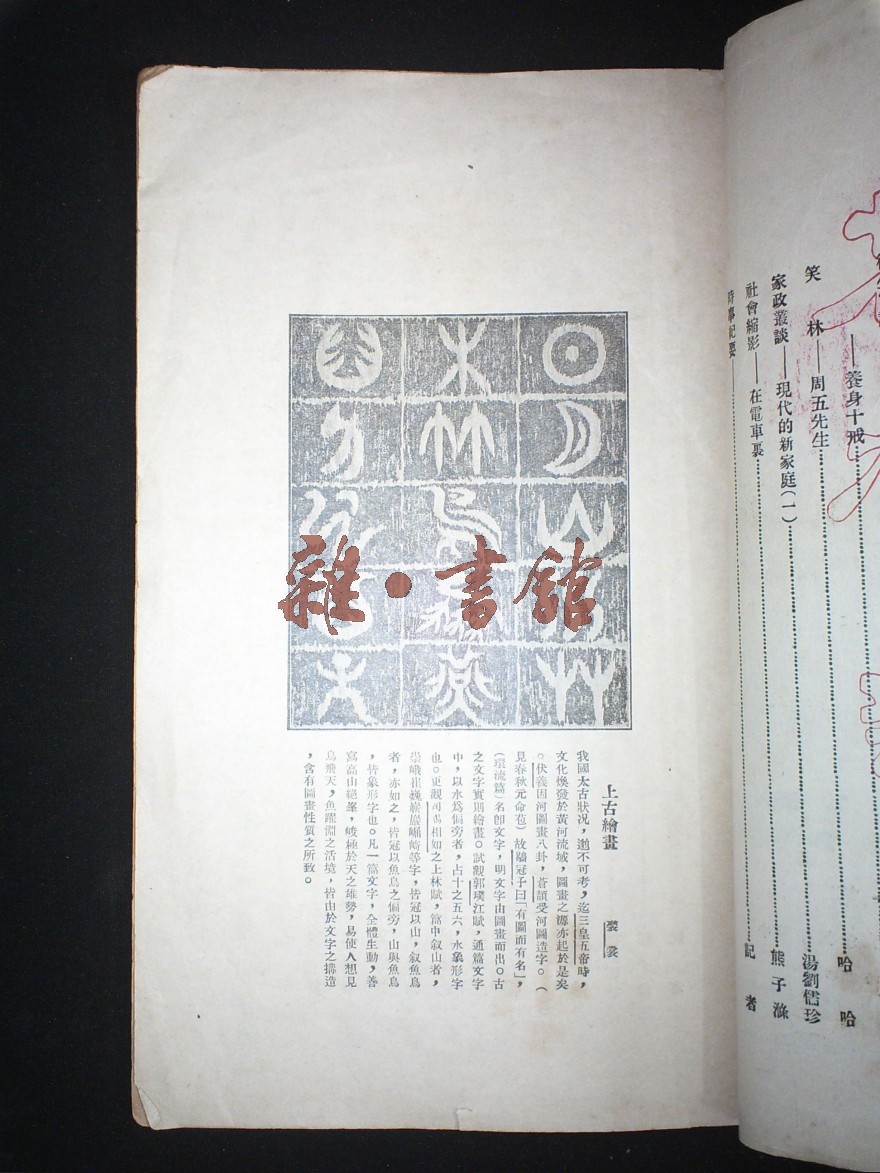 ——養身十戒……哈哈
笑林——周五先生……湯劉儒珍
家政叢談——現代的新家庭(一)……熊子
社會縮影——在電車裏……記者
時事紀要……
雜·書館
上古繪畫
我國太古狀况,邈不可考,迄三皇五帝時,
文化煥發於黃河流域,圖畫之源亦起於是矣
。伏羲因河圖畫八卦,蒼頡受河圖造字。(
見春秋元命苞)故鶡冠子曰「有圖而有名」,
(環流篇)名卽文字,明文字由圖畫而出。古
之文字實則繪畫。試觀郭璞江賦,通篇文字
中,以水爲偏旁者,占十之五六,水象形字
也。更觀司馬相如之上林賦,篇中叙山者,
崇峨崔巍嶄巖崎等字,皆冠以山,叙魚鳥
者,亦如之,皆冠以魚鳥之偏旁,山與魚鳥
,皆象形字也。凡一篇文字,全體生動,善
寫高山絕峯,峻極於天之雄勢,易使人想見
鳥飛天,魚躍淵之活境,皆由於文字之搆造
,含有圖畫性質之所致。